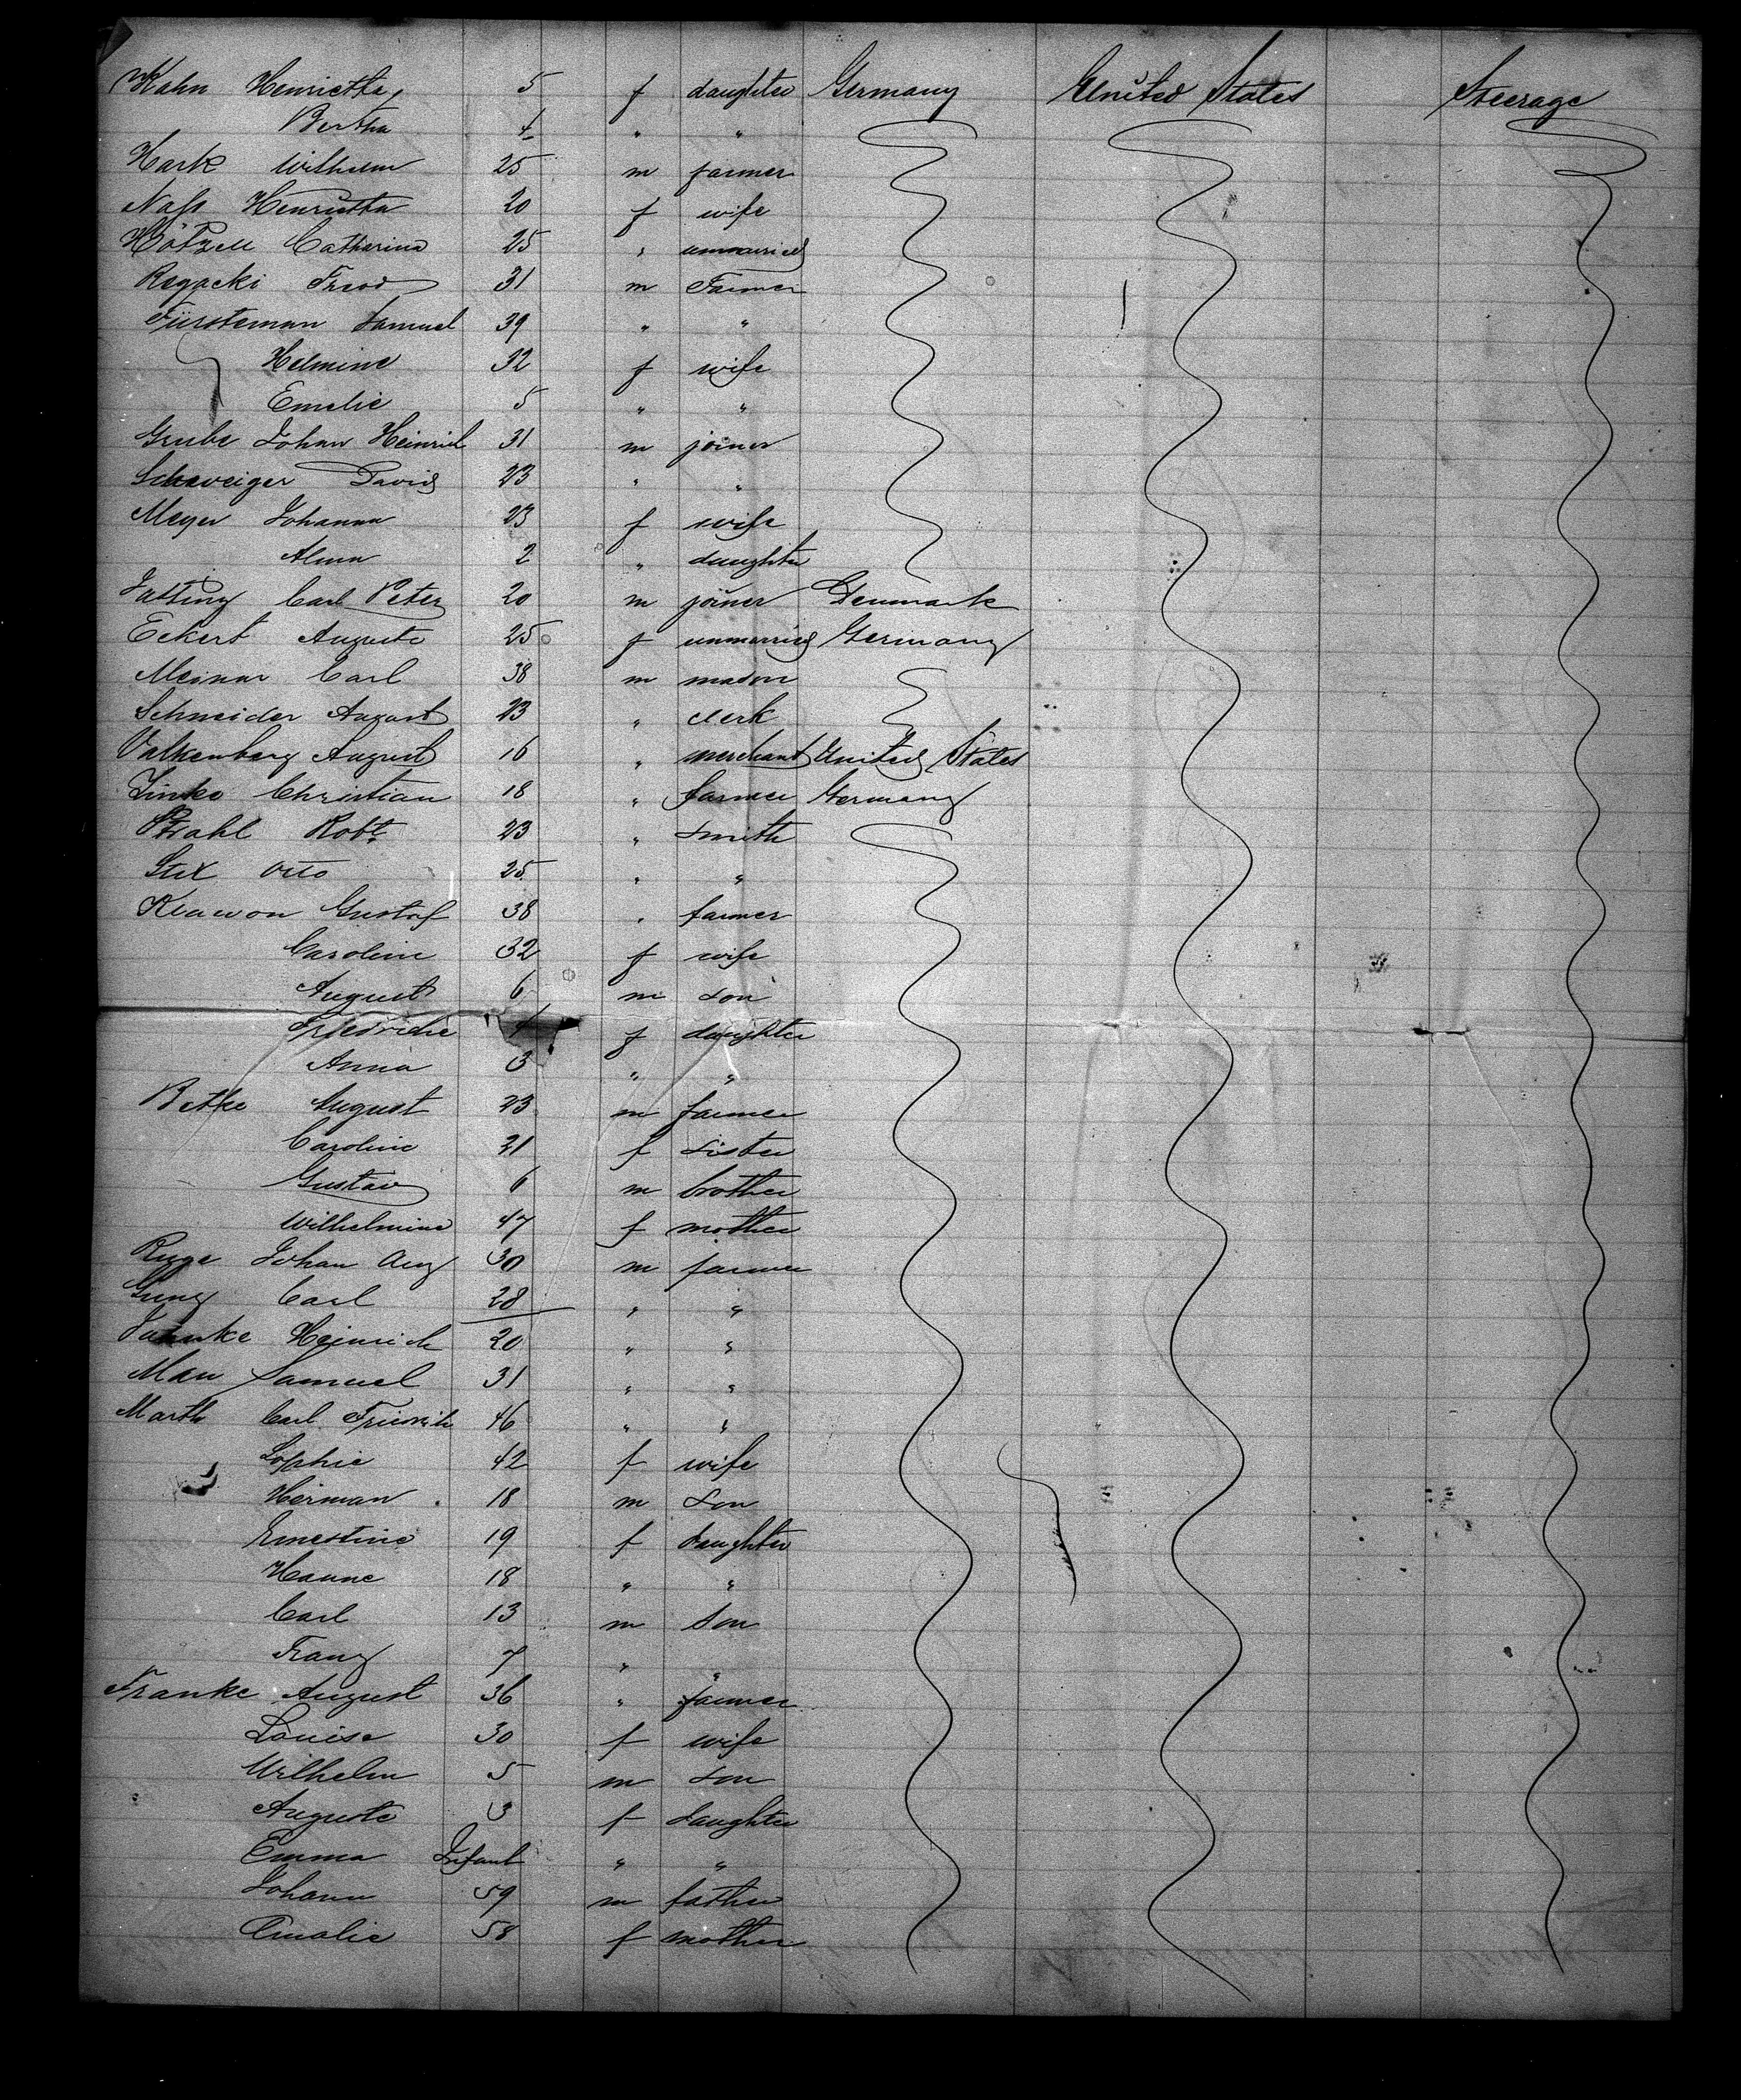 Kahn Henrietta 5 f daughter Germany United States Steerage
Bertha 4 " "
Hark Wilhelm 25 m farmer
Nass Henrietta 20 f wife
Catharina 25 " unmarried
Rogacki 31 m Farmer
Fürsteman Samuel 39 " "
Helmine 32 f wife
Emelie 5 " "
Grube Johan Heinrich 31 m joiner
Schweiger David 23 " "
Meyer Johanna 23 f wife
Alma 2 " daughter
Carl Peter 20 m joiner Denmark
Eckert Auguste 25 f unmarried Germany
Meinar Carl 38 m mason
Schneider August 23 " clerk
Valkenberg August 16 " merchant United States
Christian 18 " farmer Germany
Strahl Robt. 23 " smith
Stix Otto 25 " "
Klawon Gustaf 38 " farmer
Caroline 32 f wife
August 6 m son
Friedricke f daughter
Anna 3 " "
Betke August 23 m farmer
Caroline 21 f sister
Gustav 6 m brother
Wilhelmine 47 f mother
Johan Aug 30 m farmer
Carl 28 " "
Heinrich 20 " "
Mau Samuel 31 " "
Marth Carl Friedrich 46 " "
Sophie 42 f wife
Herman 18 m son
Ernestine 19 f daughter
Hanne 18 " "
Carl 13 m son
Franz 7 " "
Franke August 36 " farmer
Louise 30 f wife
Wilhelm 5 m son
Auguste 3 f daughter
Emma Infant " "
Johann 59 m father
Amalie 58 f mother